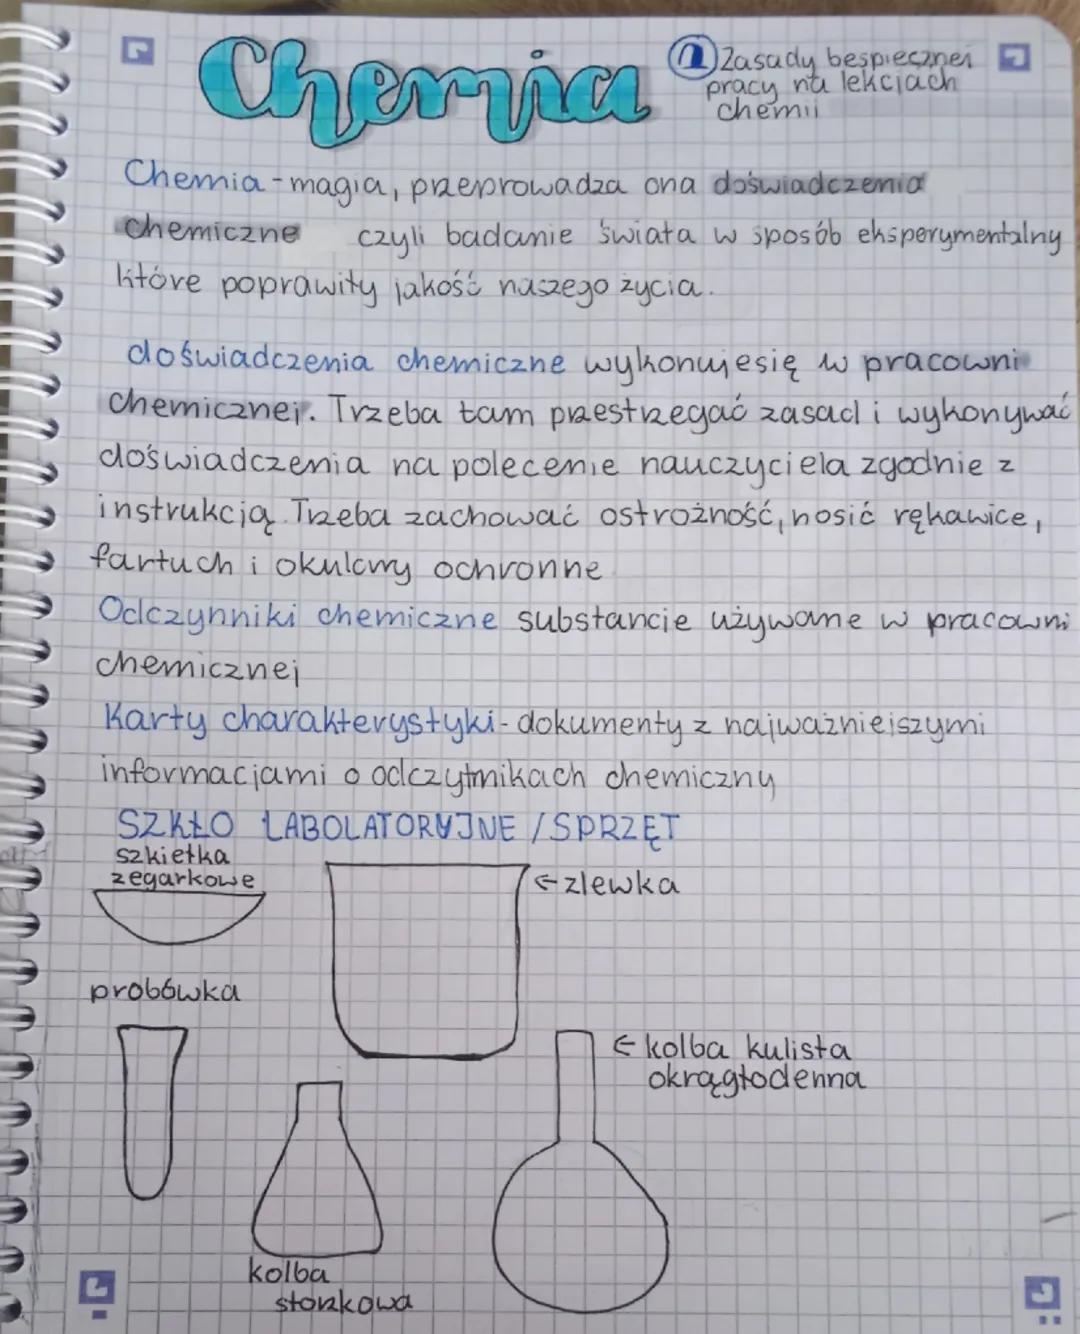 Chemia
① Zasady bespiecznej
pracy na lekcjach
chemii
Chemia - magia, przeprowadza ona doświadczenia
chemiczne czyli badanie świata w sposób eksperymentalny
które poprawiły jakość naszego życia.
doświadczenia chemiczne wykonuje się w pracowni
chemicznej. Trzeba tam przestrzegać zasad i wykonywać
doświadczenia na polecenie nauczyciela zgodnie z
instrukcją. Trzeba zachować ostrożność, nosić rękawice,
fartuch i okulary ochronne
Odczynniki chemiczne substancje używane w pracowni
chemicznej
Karty charakterystyki - dokumenty z najważniejszymi
informacjami o odczytnikach chemiczny
SZKŁO LABOLATORYJNE / SPRZĘT
szkiełka
zegarkowe
← zlewka
probówka
← kolba kulista
okrągłodenna
kolba
stożkowa